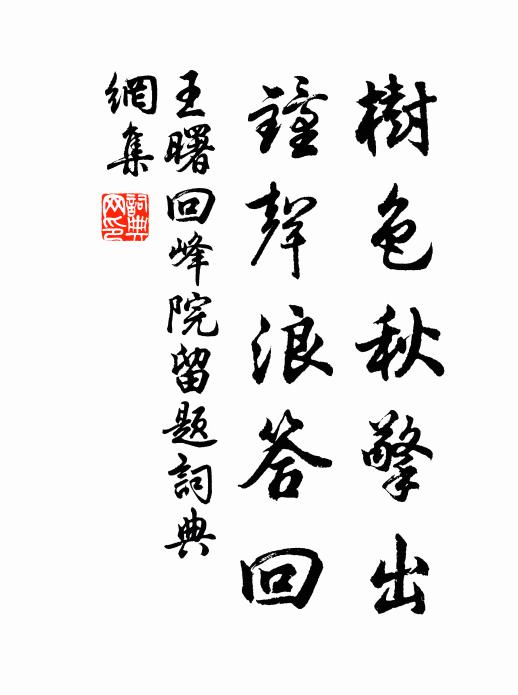 樹色秋擎出
鐘聲浪答回
王曙回峰院留題詞典
網集
詞典
网印